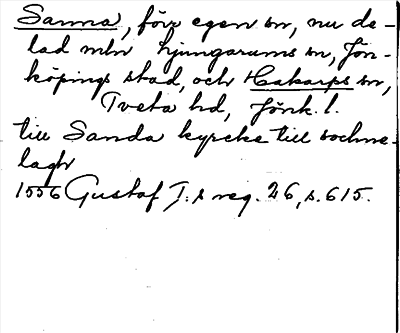 Sanna, förr egen sn, nu de-
lad mln Ljungarums sn, Jön-
köpings stad, och Hakarps sn,
Tveta hd, Jönk. l.
till Sanda kyrcke till sochne-
lagh
1556 Gustaf I:s reg. 26, s. 615.